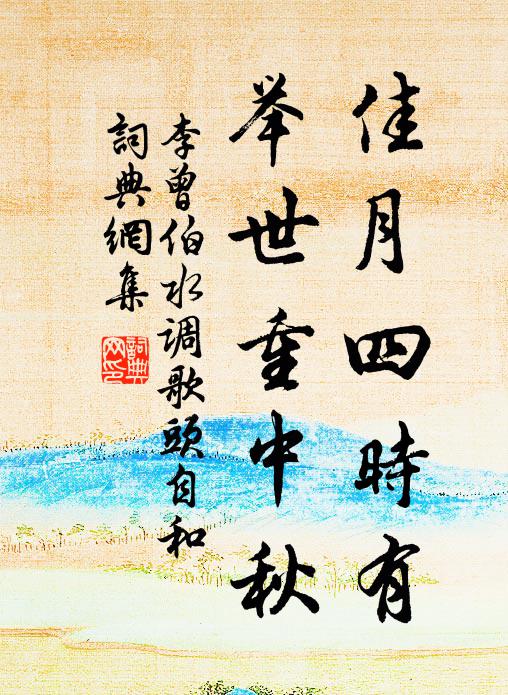 佳月四時有
举世重中秋
李曾伯水调歌頭自和
詞典網集
詞典網印